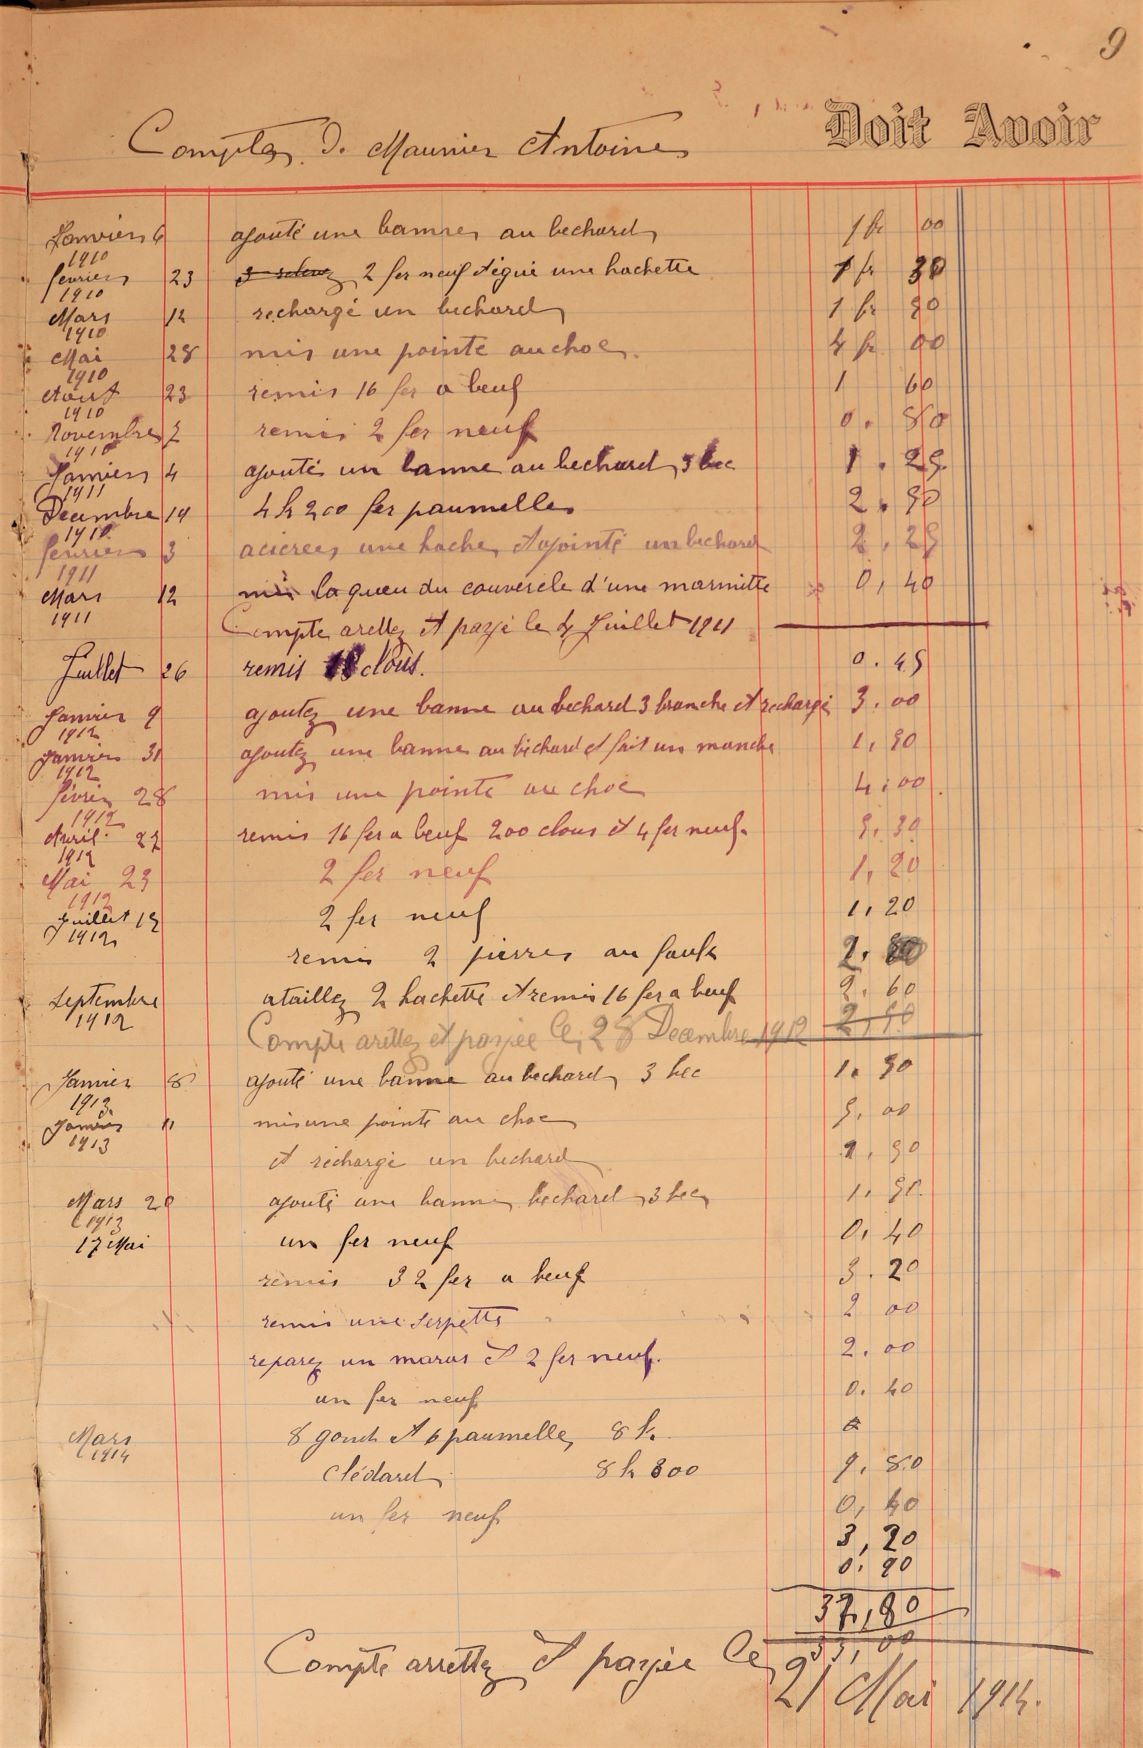 9
Doit Avoir
Comptes De Maunier Antoine
Janvier 6 ajouté une banne au bechard 1 fr 00
1910
fevrier 23 2 fer neuf et égué une hachette 1 fr 30
1910
Mars 12 rechargé un bechard 1 fr 50
1910
Mai 28 mis une pointe au choc 4 fr 00
1910
Aout 23 remis 16 fer a beuf 1 60
1910
Novembre 7 remis 2 fer neuf 0. 80
1910
Janvier 4 ajoutés un banne au bechard 3 bec 1. 25
1911
Decembre 14 4 k 200 fer paumelles 2. 50
1910
fevrier 3 acierees une hache et apointé un bechard 2, 25
1911
Mars 12 mis la queu du couvercle d'une marmitte 0, 40
1911
Compte arettez et payé le 4 Juillet 1911
Juillet 26 remis 18 clous. 0. 45
Janvier 9 ajoutez une banne au bechard 3 branche et rechargé 3. 00
1912
Janvier 31 ajoutez une banne au bechard et fait un manche 1, 50
1912
févrie 28 mis une pointe au choc 4, 00
1912
Avril 27 remis 16 fer a beuf 200 clous et 4 fer neuf. 5. 30
1912
Mai 23 2 fer neuf 1, 20
1912
Juillet 15 2 fer neuf 1, 20
1912
remis 2 pierres au foulx 2.
Septembre ataillez 2 hachette et remis 16 fer a beuf 2. 60
1912
Compte arettez et payée le, 28 Decembre 1912 2,50
Janvier 8 ajouté une banne au bechard 3 bec 1. 50
1913
Janvier 11 mis une pointe au choc 5, 00
1913
et rechargé un bechard 1, 50
Mars 20 ajouté une banne bechard 3 bec 1. 50
1913
17 Mai un fer neuf 0, 40
remis 32 fer a beuf 3. 20
remis une serpette 2 00
reparez un maras et 2 fer neuf. 2. 00
un fer neuf 0. 40
Mars 8 gond et 6 paumelle, 8 k.
1914
clédard 8 k 800 9. 80
un fer neuf 0, 40
3, 20
0. 90
37,80
33,00
Compte arrettez et payée le
21 Mai 1914.